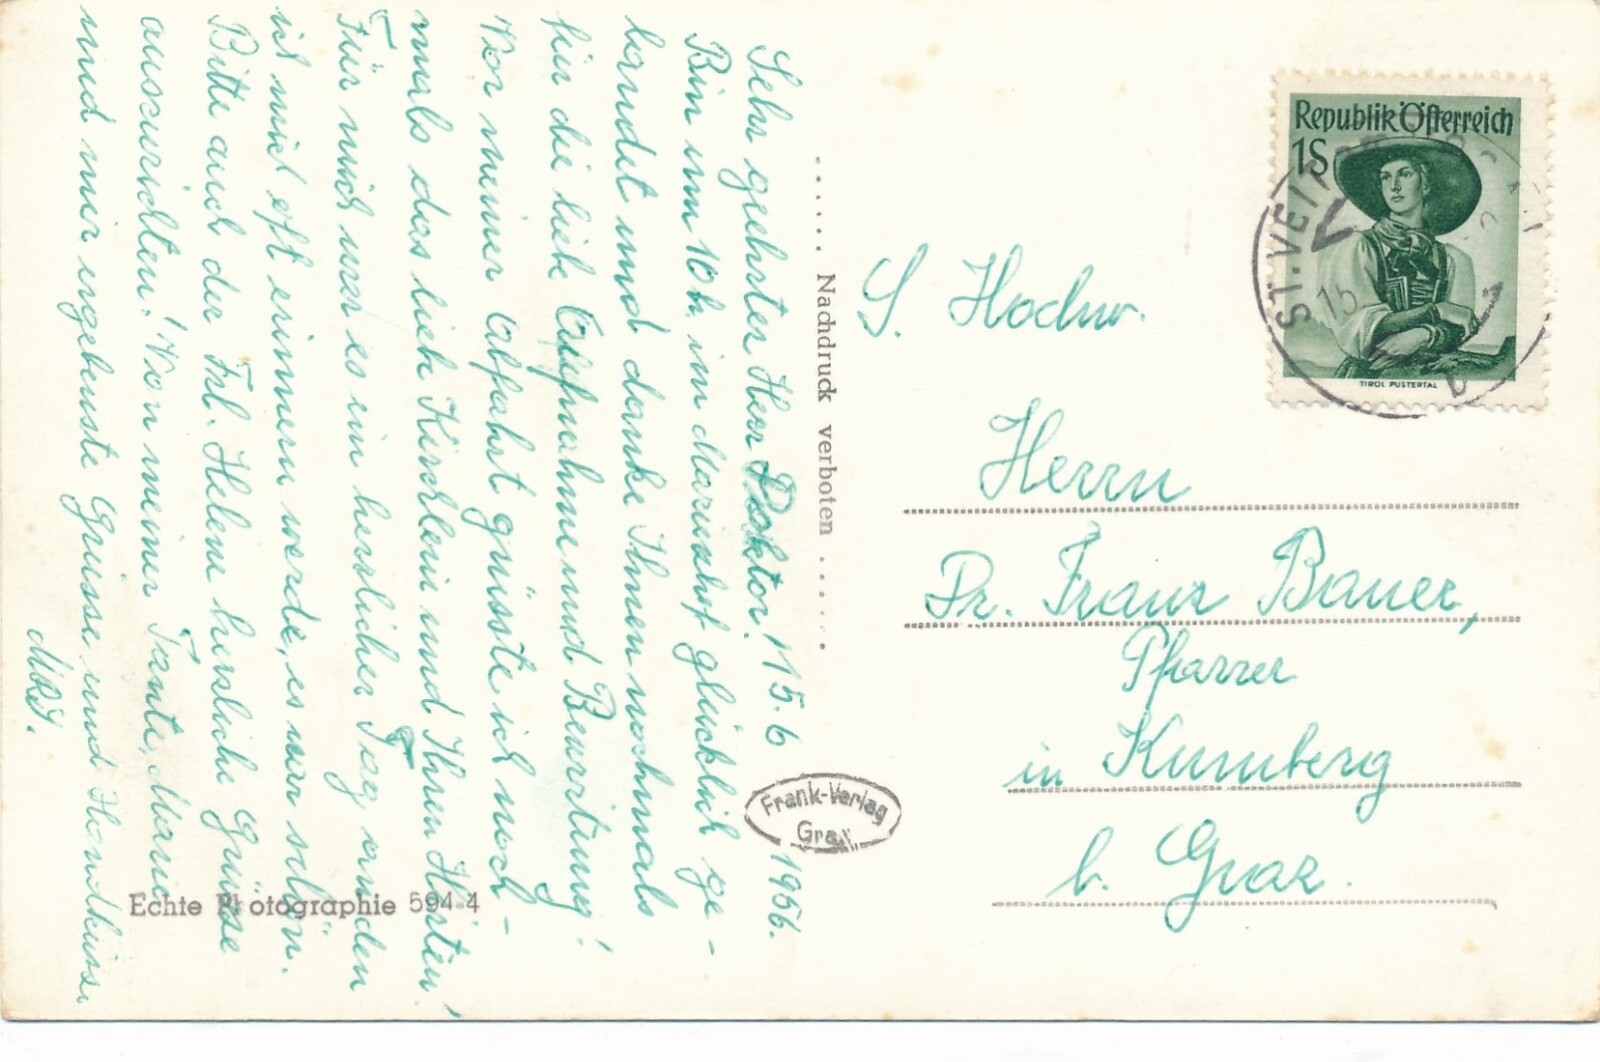 Sehr geehrter Herr Doktor! 15.6 1956.
Bin um 10h im Marienhof glücklich ge-
landet und danke Ihnen nochmals
für die liebe Aufnahme und Bewirtung!
Vor meiner Abfahrt grüsste ich noch-
mals das liebe Kirchlein und Ihren Hirten!
Für mich war es ein herrlicher Tag an den
ich mich oft erinnern werde, es war schön.
Bitte auch der Frl. Helene herzliche Grüsse
auszurichten! Von meiner Tante, Maria
und mir ergebenste Grüsse und Handküsse
Nachdruck verboten
Frank-Verlag
Graz
Echte Photographie 594-4
Republik Österreich
1S
TIROL PUSTERTAL
ST. VEIT
15
S. Hochw.
Herrn
Dr. Franz Bauer,
Pfarrer
in Kumberg
b. Graz.